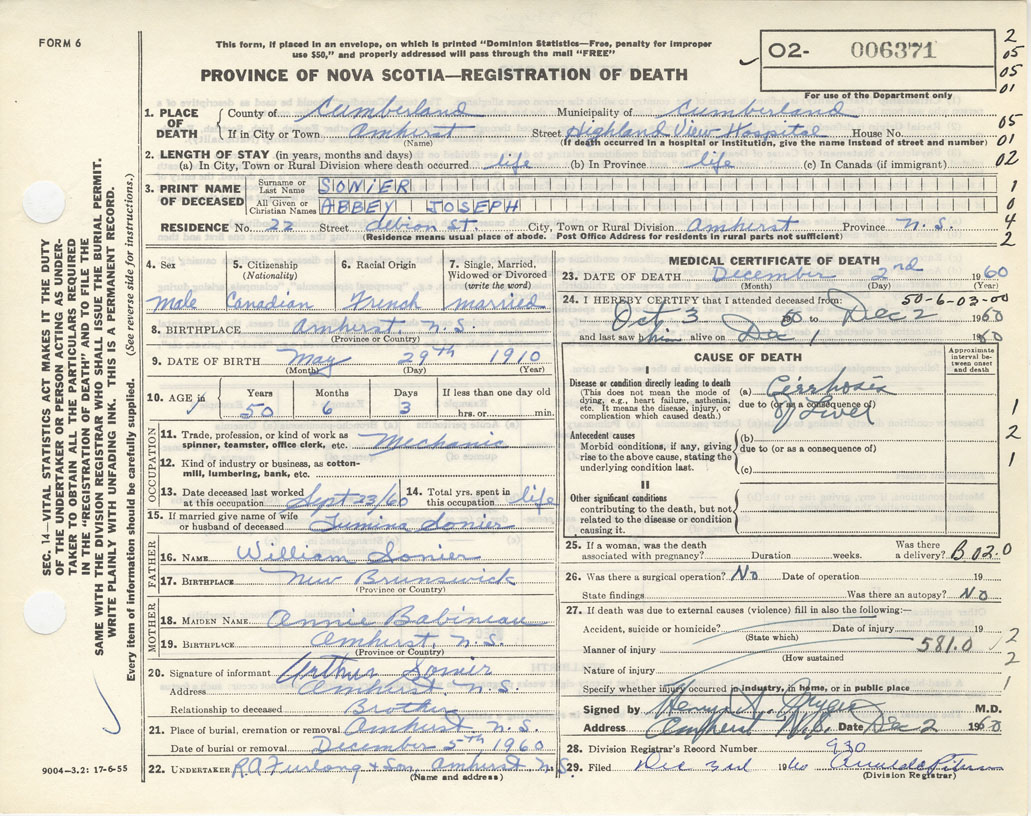 FORM 6
This form, if placed in an envelope, on which is printed "Dominion Statistics—Free, penalty for improper
use $50," and properly addressed will pass through the mail "FREE"
PROVINCE OF NOVA SCOTIA—REGISTRATION OF DEATH
O2- 006371
For use of the Department only
2
05
05
01
05
01
02
1
0
4
2
1. PLACE OF DEATH
County of Cumberland Municipality of Cumberland
If in City or Town Amherst Street Highland View Hospital House No.
(Name) (If death occurred in a hospital or institution, give the name instead of street and number)
2. LENGTH OF STAY (in years, months and days)
(a) In City, Town or Rural Division where death occurred life (b) In Province life (c) In Canada (if immigrant)
3. PRINT NAME OF DECEASED
Surname or Last Name SONIER
All Given or Christian Names ABBEY JOSEPH
RESIDENCE No. 22 Street Albion St. City, Town or Rural Division Amherst Province N.S.
(Residence means usual place of abode. Post Office Address for residents in rural parts not sufficient)
4. Sex
male
5. Citizenship
(Nationality)
Canadian
6. Racial Origin
French
7. Single, Married,
Widowed or Divorced
(write the word)
married
8. BIRTHPLACE Amherst N.S.
(Province or Country)
9. DATE OF BIRTH May 29th 1910
(Month) (Day) (Year)
10. AGE in
Years Months Days If less than one day old
50 6 3 hrs. or min.
OCCUPATION
11. Trade, profession, or kind of work as
spinner, teamster, office clerk, etc. Mechanic
12. Kind of industry or business, as cotton-
mill, lumbering, bank, etc.
13. Date deceased last worked
at this occupation Sept 23/60
14. Total yrs. spent in
this occupation life
15. If married give name of wife
or husband of deceased Sonier
FATHER
16. NAME William Sonier
17. BIRTHPLACE New Brunswick
(Province or Country)
MOTHER
18. MAIDEN NAME Annie Babineau
19. BIRTHPLACE Amherst, N.S.
(Province or Country)
20. Signature of informant Arthur Sonier
Address Amherst, N.S.
Relationship to deceased Brother
21. Place of burial, cremation or removal Amherst N.S.
Date of burial or removal December 5th, 1960
22. UNDERTAKER R.A. Furlong & Son, Amherst N.S.
(Name and address)
MEDICAL CERTIFICATE OF DEATH
23. DATE OF DEATH December 2nd 1960
(Month) (Day) (Year)
24. I HEREBY CERTIFY that I attended deceased from: 50-6-03-00
Oct 3 60 to Dec 2 1960
and last saw him alive on Dec 1 1960
CAUSE OF DEATH
Approximate
interval be-
tween onset
and death
I
Disease or condition directly leading to death
(This does not mean the mode of
dying, e.g., heart failure, asthenia,
etc. It means the disease, injury, or
complication which caused death.)
(a) Cirrhosis
due to (or as a consequence of)
of Liver
Antecedent causes
Morbid conditions, if any, giving
rise to the above cause, stating the
underlying condition last.
(b)
due to (or as a consequence of)
(c)
II
Other significant conditions
contributing to the death, but not
related to the disease or condition
causing it.
1
2
1
25. If a woman, was the death
associated with pregnancy? Duration weeks. Was there
a delivery? B 02.0
26. Was there a surgical operation? No Date of operation 19
State findings Was there an autopsy? No
27. If death was due to external causes (violence) fill in also the following:—
Accident, suicide or homicide? Date of injury 19
(State which)
Manner of injury 581.0
(How sustained
Nature of injury
Specify whether injury occurred in industry, in home, or in public place
2
2
1
Signed by M.D.
Address Amherst N.S. Date Dec 2 1960
28. Division Registrar's Record Number 930
29. Filed Dec 3rd 1960
(Division Registrar)
SEC. 14—VITAL STATISTICS ACT MAKES IT THE DUTY
OF THE UNDERTAKER OR PERSON ACTING AS UNDER-
TAKER TO OBTAIN ALL THE PARTICULARS REQUIRED
IN THE "REGISTRATION OF DEATH" AND TO FILE THE
SAME WITH THE DIVISION REGISTRAR WHO SHALL ISSUE THE BURIAL PERMIT.
WRITE PLAINLY WITH UNFADING INK. THIS IS A PERMANENT RECORD.
Every item of information should be carefully supplied. (See reverse side for instructions.)
9004—3.2: 17-6-55